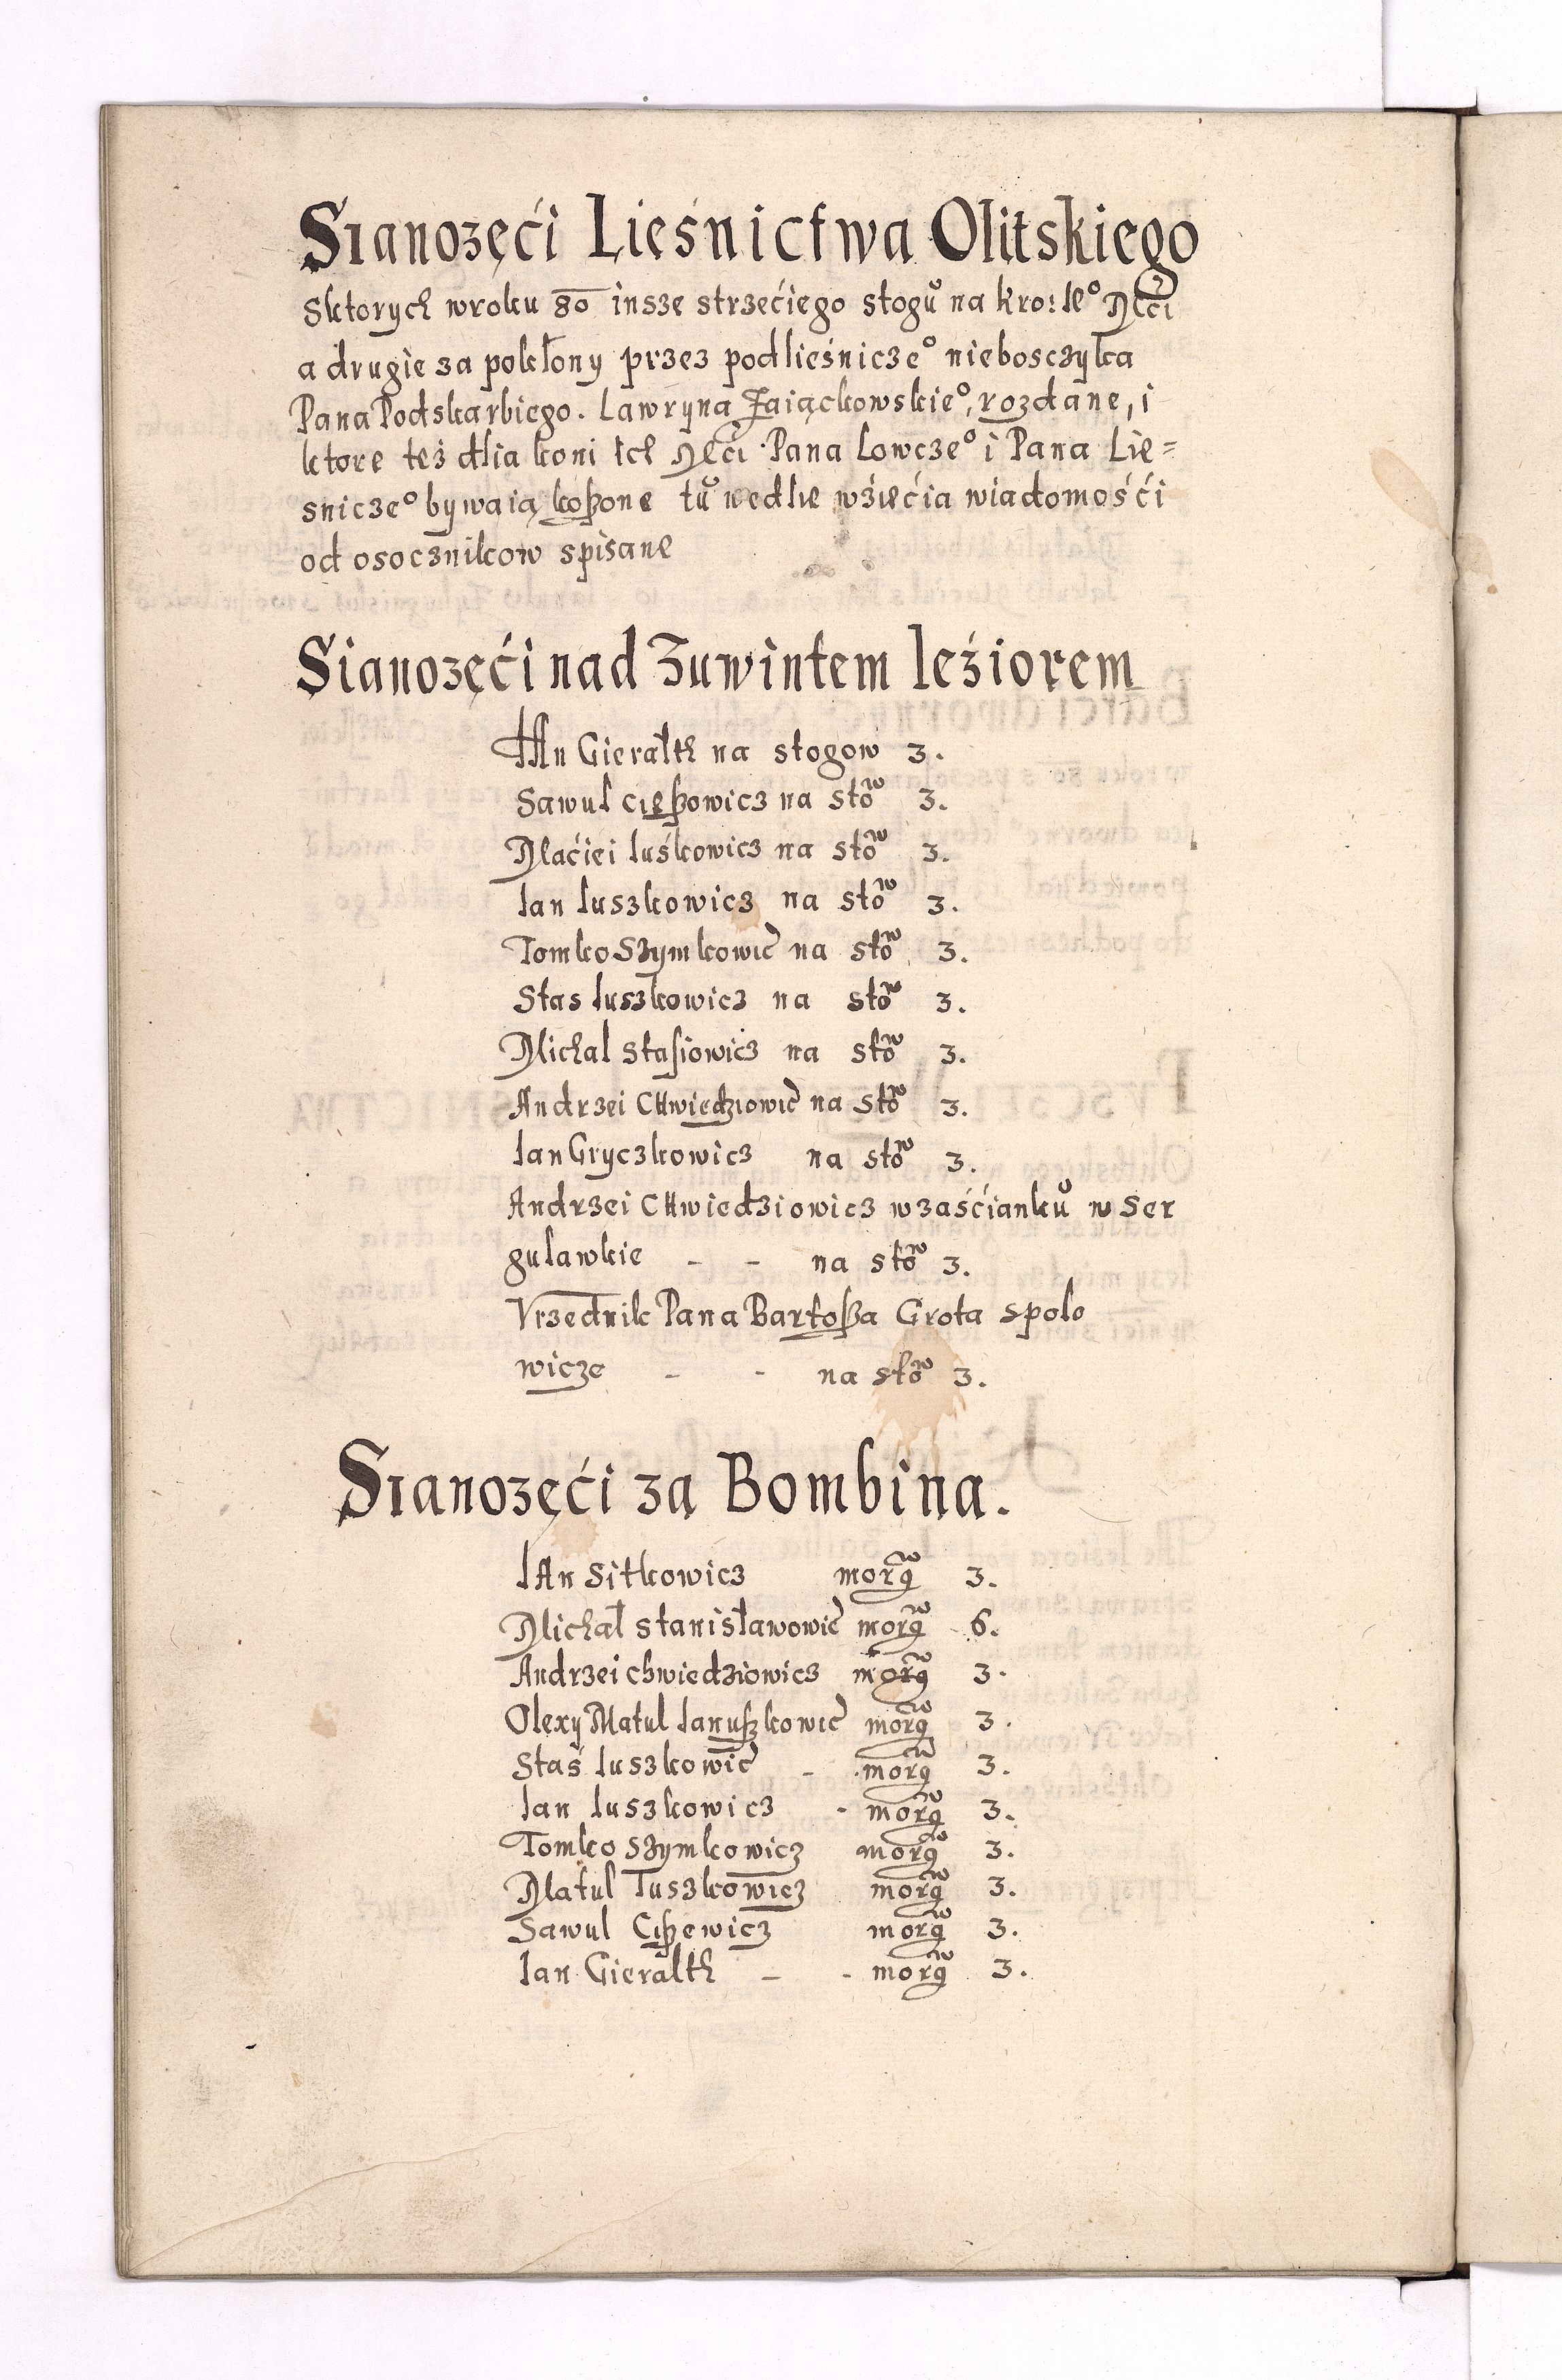 Sianozęći Lieśnictwa Olitskiego
Sktorych wroku 80 insze strzećiego stogů na kro: Ie° Mći
a drugie za pokłony przez podlieśnicze° nieboszczyka
Pana Podskarbiego. Lawryna Zaiąckowskie°, rozdane, i
ktore też dlia koni Ich Mći. Pana Lowcze° i Pana Lie=
snicze° bywaią koßone tů wedlie wźięćia wiadomośći
od osocznikow spisane
Sianozęći nad Zuwintem Ieźiorem
IAn Gierałth na stogow 3.
Sawul Cießowicz na stow 3.
Maćiei Iuśkowicz na stow 3.
Ian Iuszkowicz na stow 3.
Tomko Szymkowic na stow 3.
Stas Iuszkowicz na stow 3.
Michal Stasiowicz na stow 3.
Andrzei Chwiedziowic na stow 3.
Ian Gryczkowicz na stow 3.
Andrzei Chwiedziowicz wzaśćianků w Ser
gulawkie - - na stow 3.
Vrzednik Pana Bartoßa Grota spolo
wicze - - na stow 3.
Sianozęći za Bombina.
IAn Sitkowicz morgw 3.
Michał Stanisławowic morgw 6.
Andrzei Chwiedziowicz morgw 3.
Olexy Matul Ianußkowic morgw 3.
Staś Iuszkowic - morgw 3.
Ian Iuszkowicz - morgw 3.
Tomko Szymkowicz morgw 3.
Matul Iuszkowicz morgw 3.
Sawul Cißewicz morgw 3.
Ian Gierałth - - morgw 3.